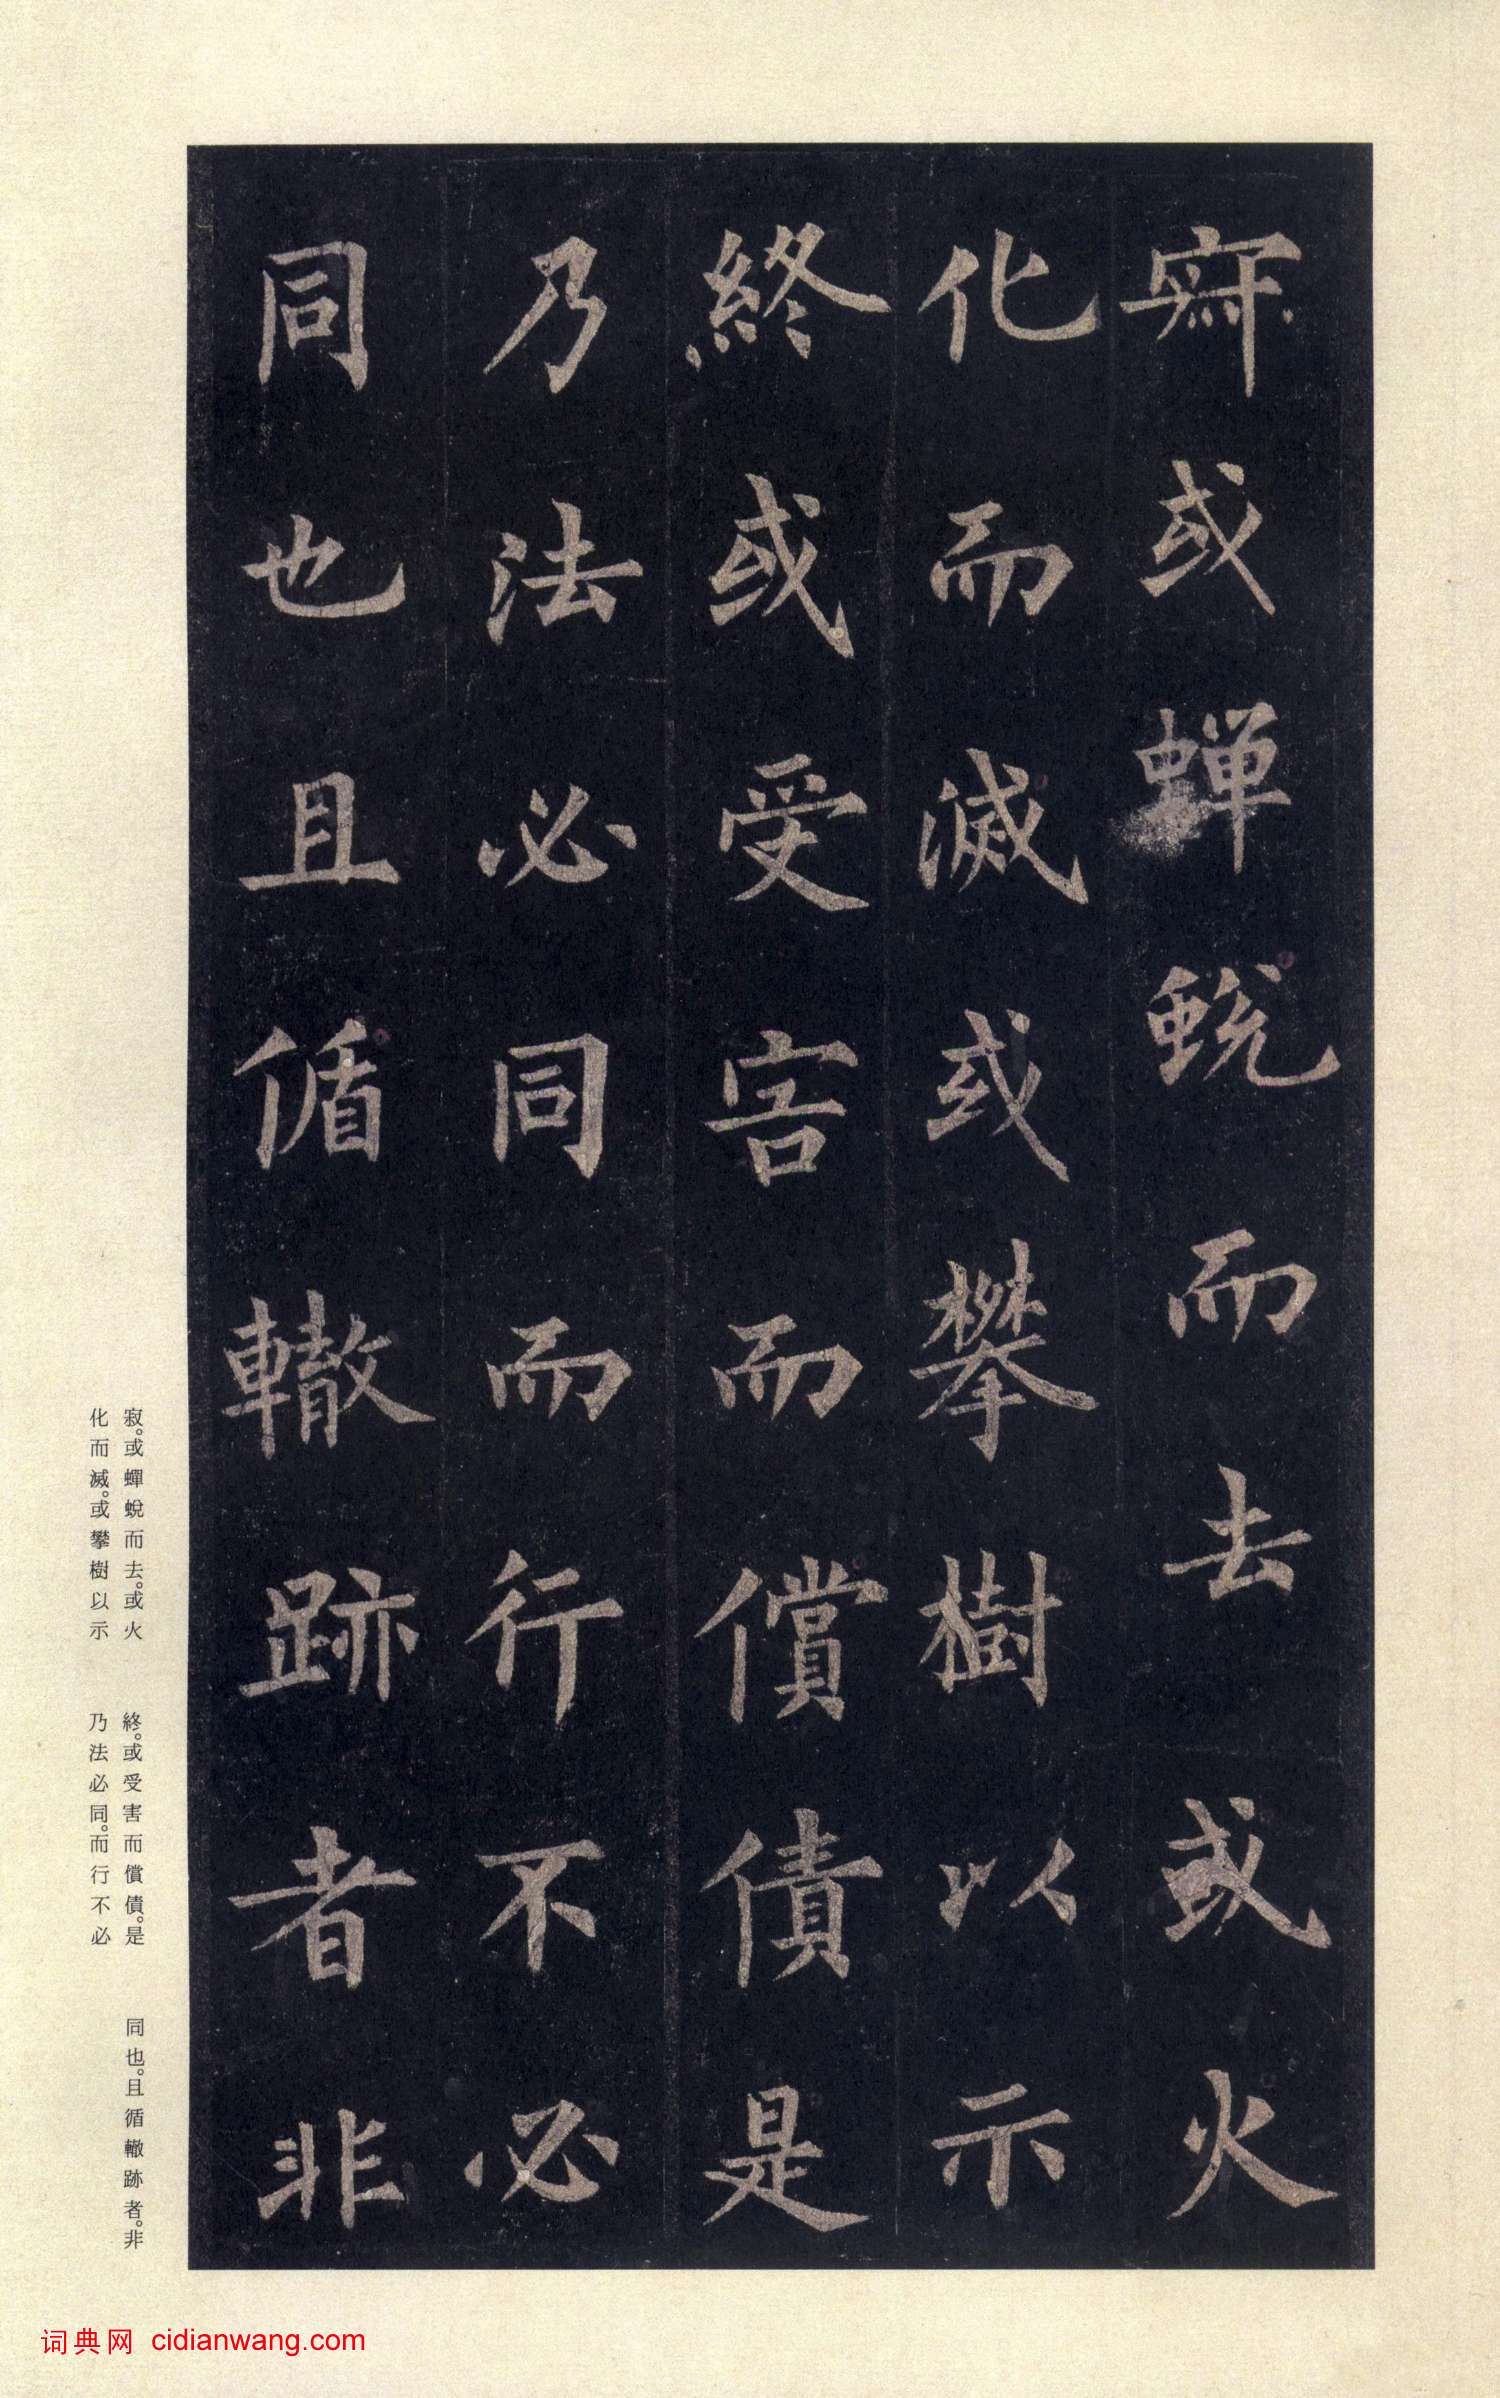 寂或蟬蛻而去或火
化而滅或攀樹以示
終或受害而償債是
乃法必同而行不必
同也且循轍跡者非
寂。或蟬蛻而去。或火
化而滅。或攀樹以示
終。或受害而償債。是
乃法必同。而行不必
同也。且循轍跡者。非
词典网 cidianwang.com